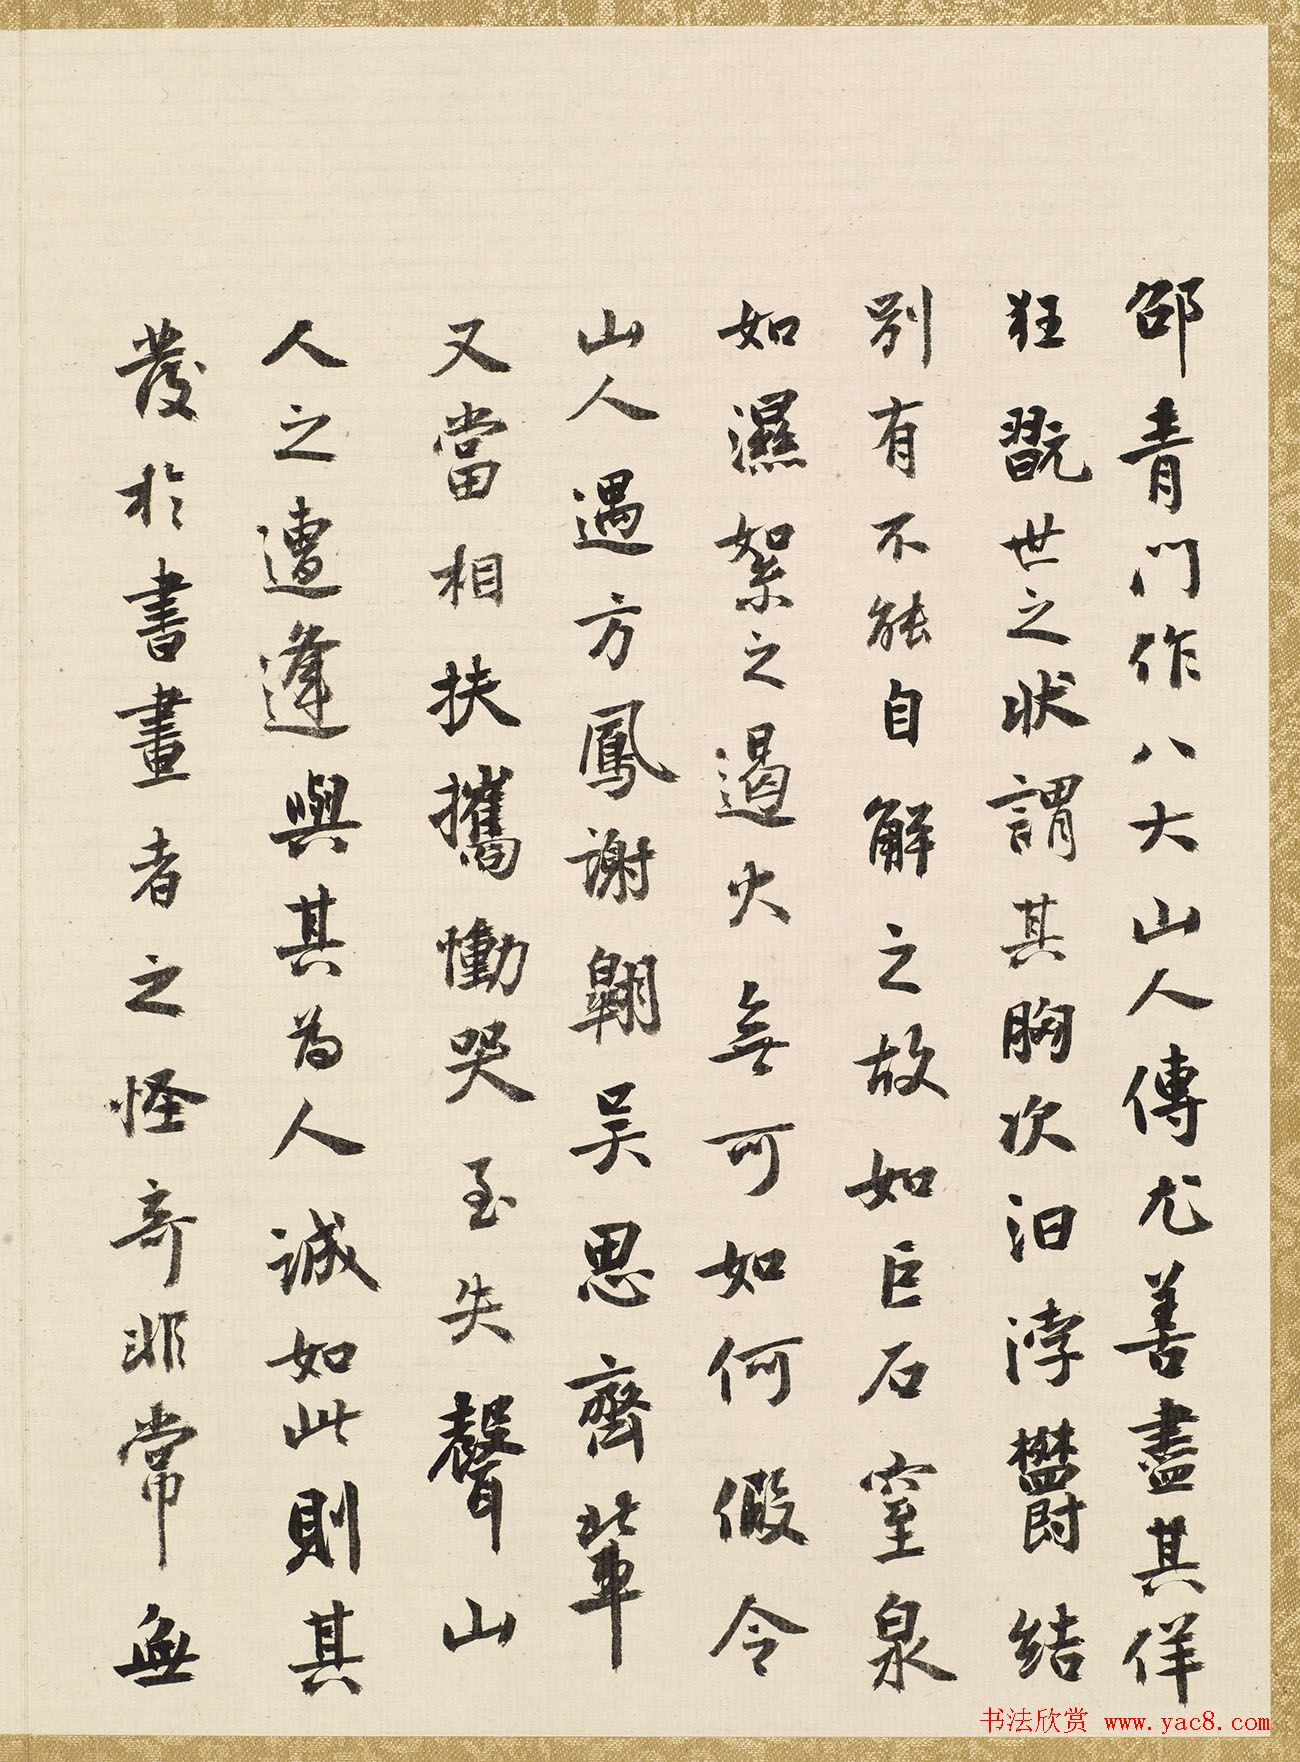 邵青門作八大山人傳尤善盡其佯
狂翫世之狀謂其胸次汩浡鬱結
別有不能自解之故如巨石窒泉
如濕絮之遏火無可如何假令
山人遇方鳳謝翱吳思齊輩
又當相扶攜慟哭至失聲山
人之遭逢與其為人誠如此則其
發於書畫者之怪奇非常無
书法欣赏 www.yac8.com